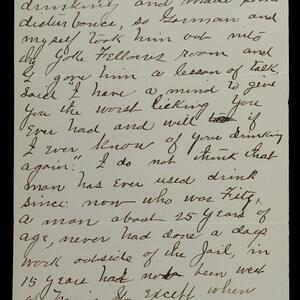 drinking and made some
disturbance, so Gorman and
myself took him out into
the Yoke Fellows room and
I gave him a lesson of talk,
said "I have a mind to give
you the worst licking you
ever had and will if
I ever know of your drinking
again." I do not think that
man has ever used drink
since. now who was Fitz,
a man about 25 years of
age, never had done a days
work outside of the Jail, in
15 years had been west
except when